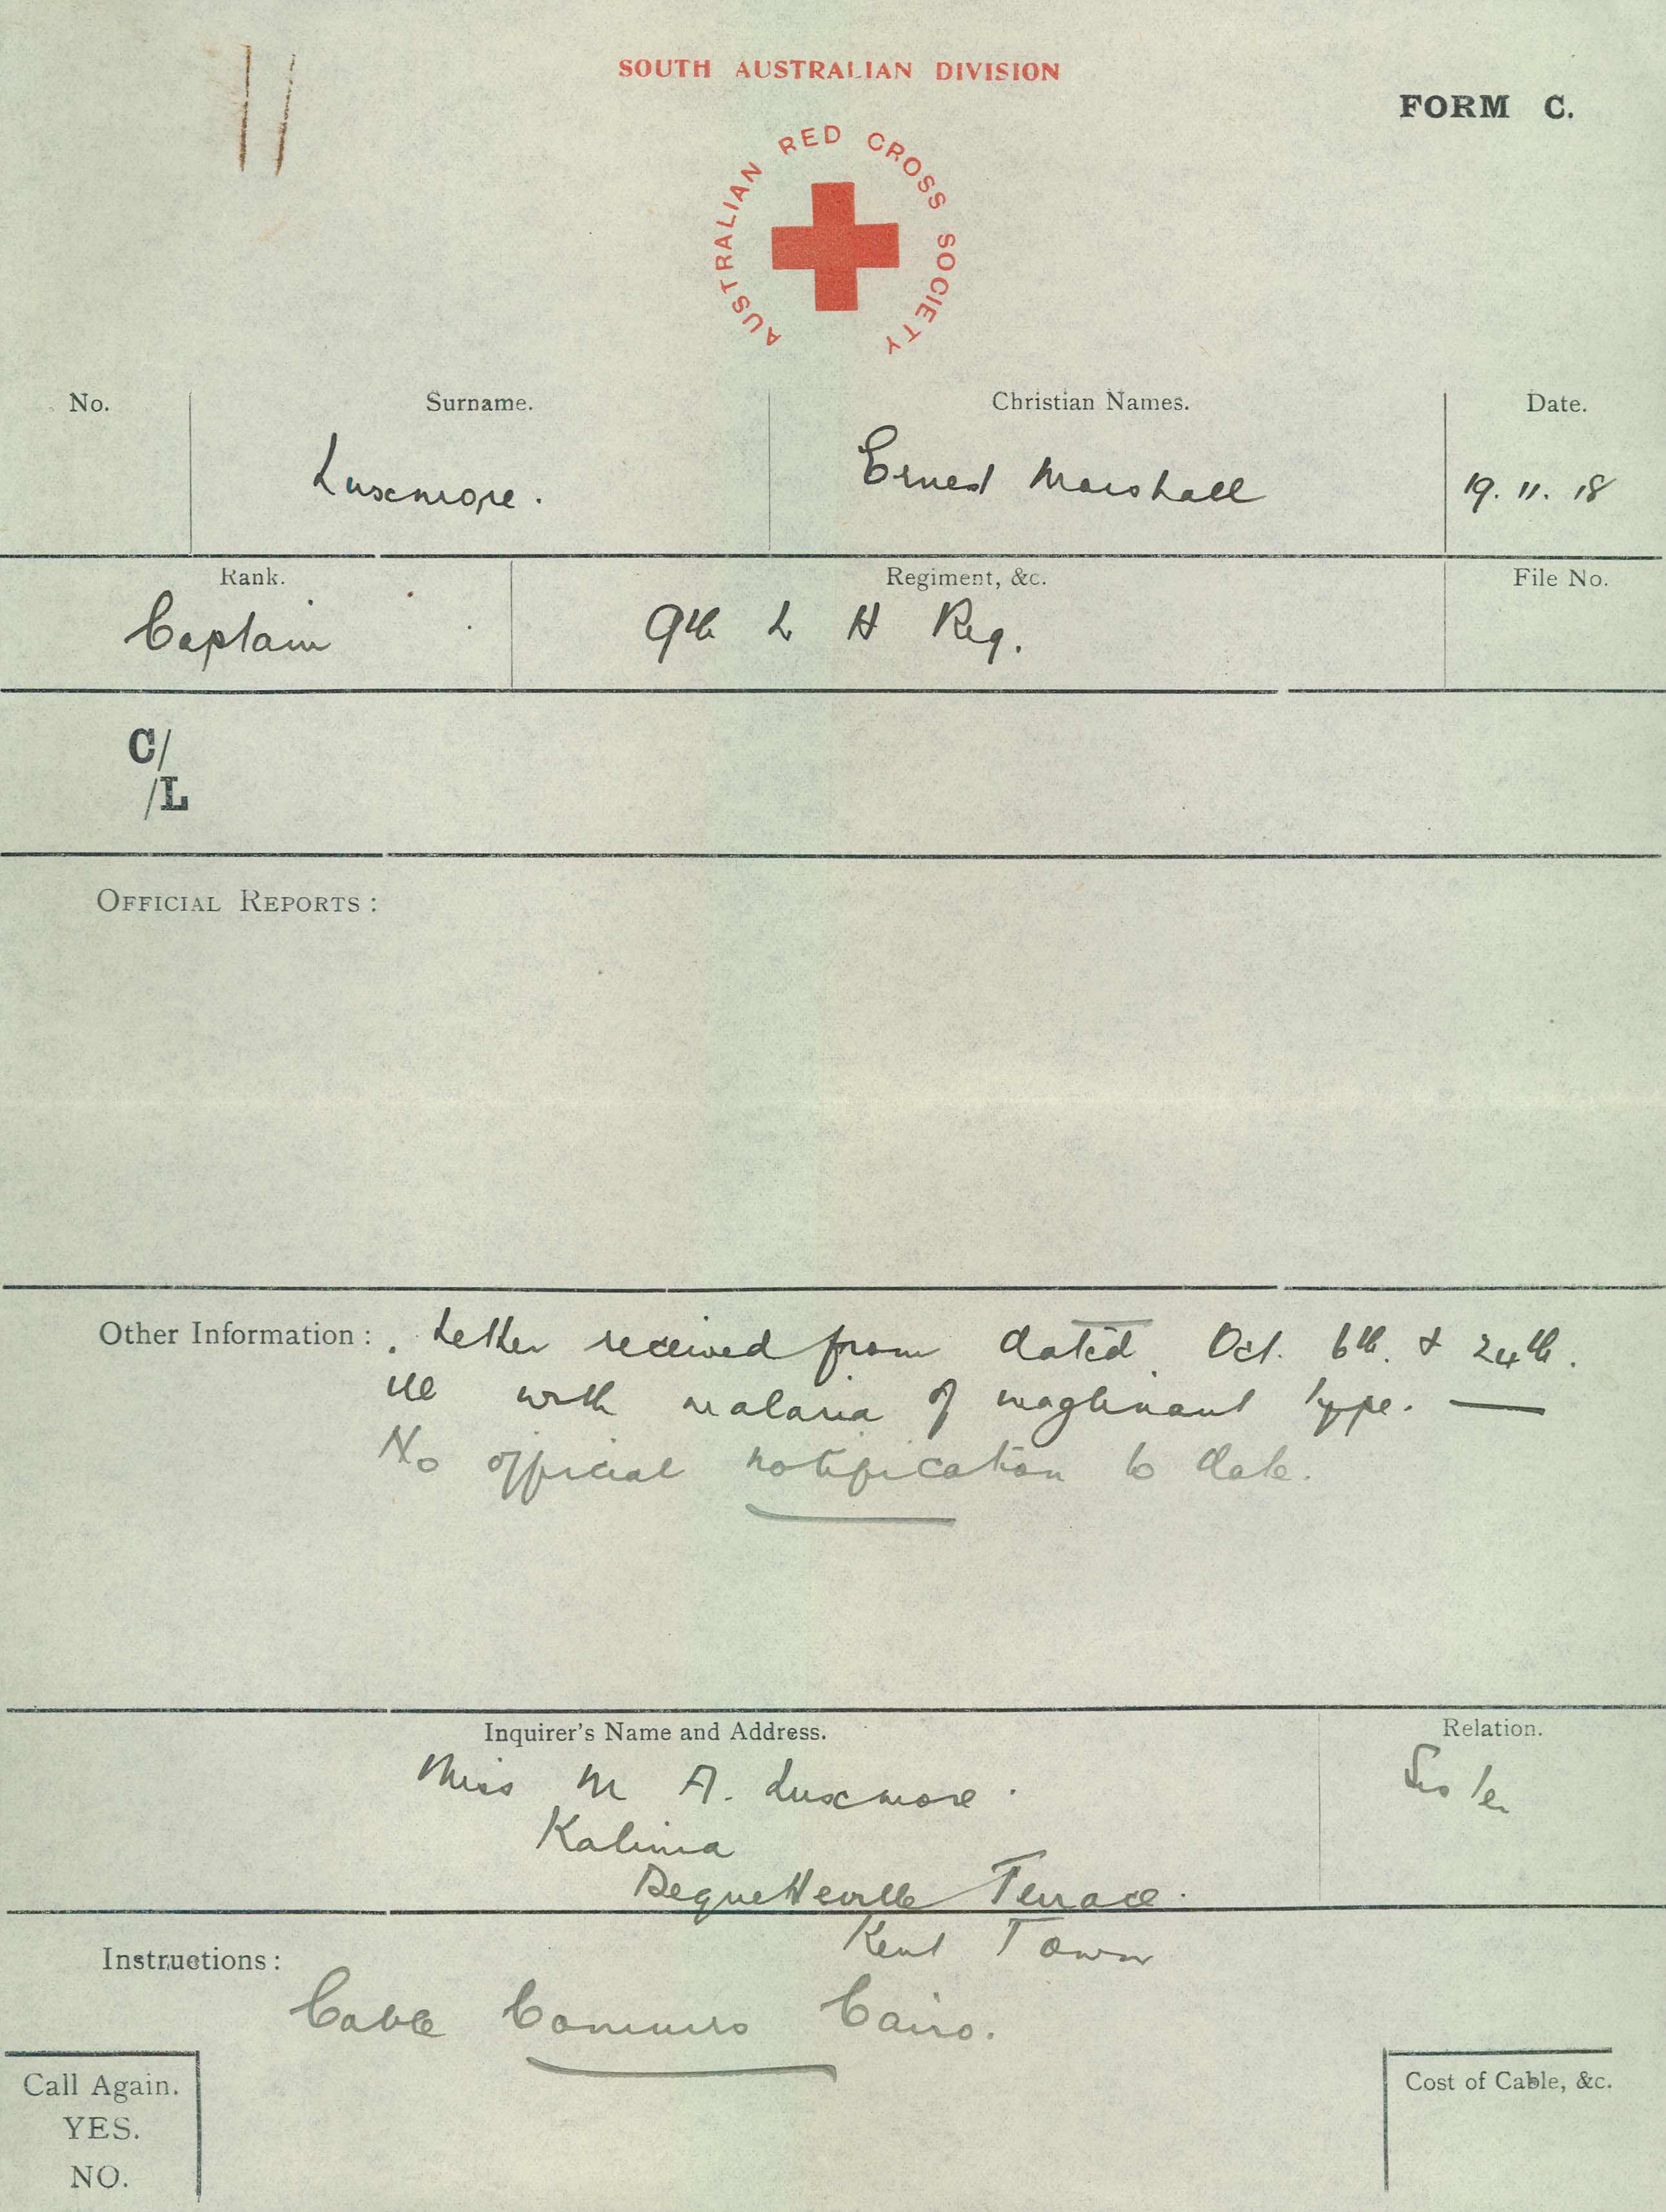 SOUTH AUSTRALIAN DIVISION
FORM C.
AUSTRALIAN RED CROSS SOCIETY
No. Surname. Christian Names. Date.
Luxmore. Ernest Marshall 19. 11. 18
Rank. Regiment, &c. File No.
Captain 9th L H Reg.
C/
/L
OFFICIAL REPORTS :
Other Information : . Letter received from dated Oct. 6th. & 24th.
ill with malaria of maglinant type. —
No official notification to date.
Inquirer's Name and Address. Relation.
Miss M A. Luxmore. Sister
Kalima
Dequetteville Terrace.
Kent Town
Instructions :
Cable Commrs Cairo.
Call Again. Cost of Cable, &c.
YES.
NO.